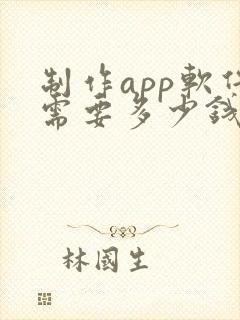 制作app軟件
需要多少錢
林國生